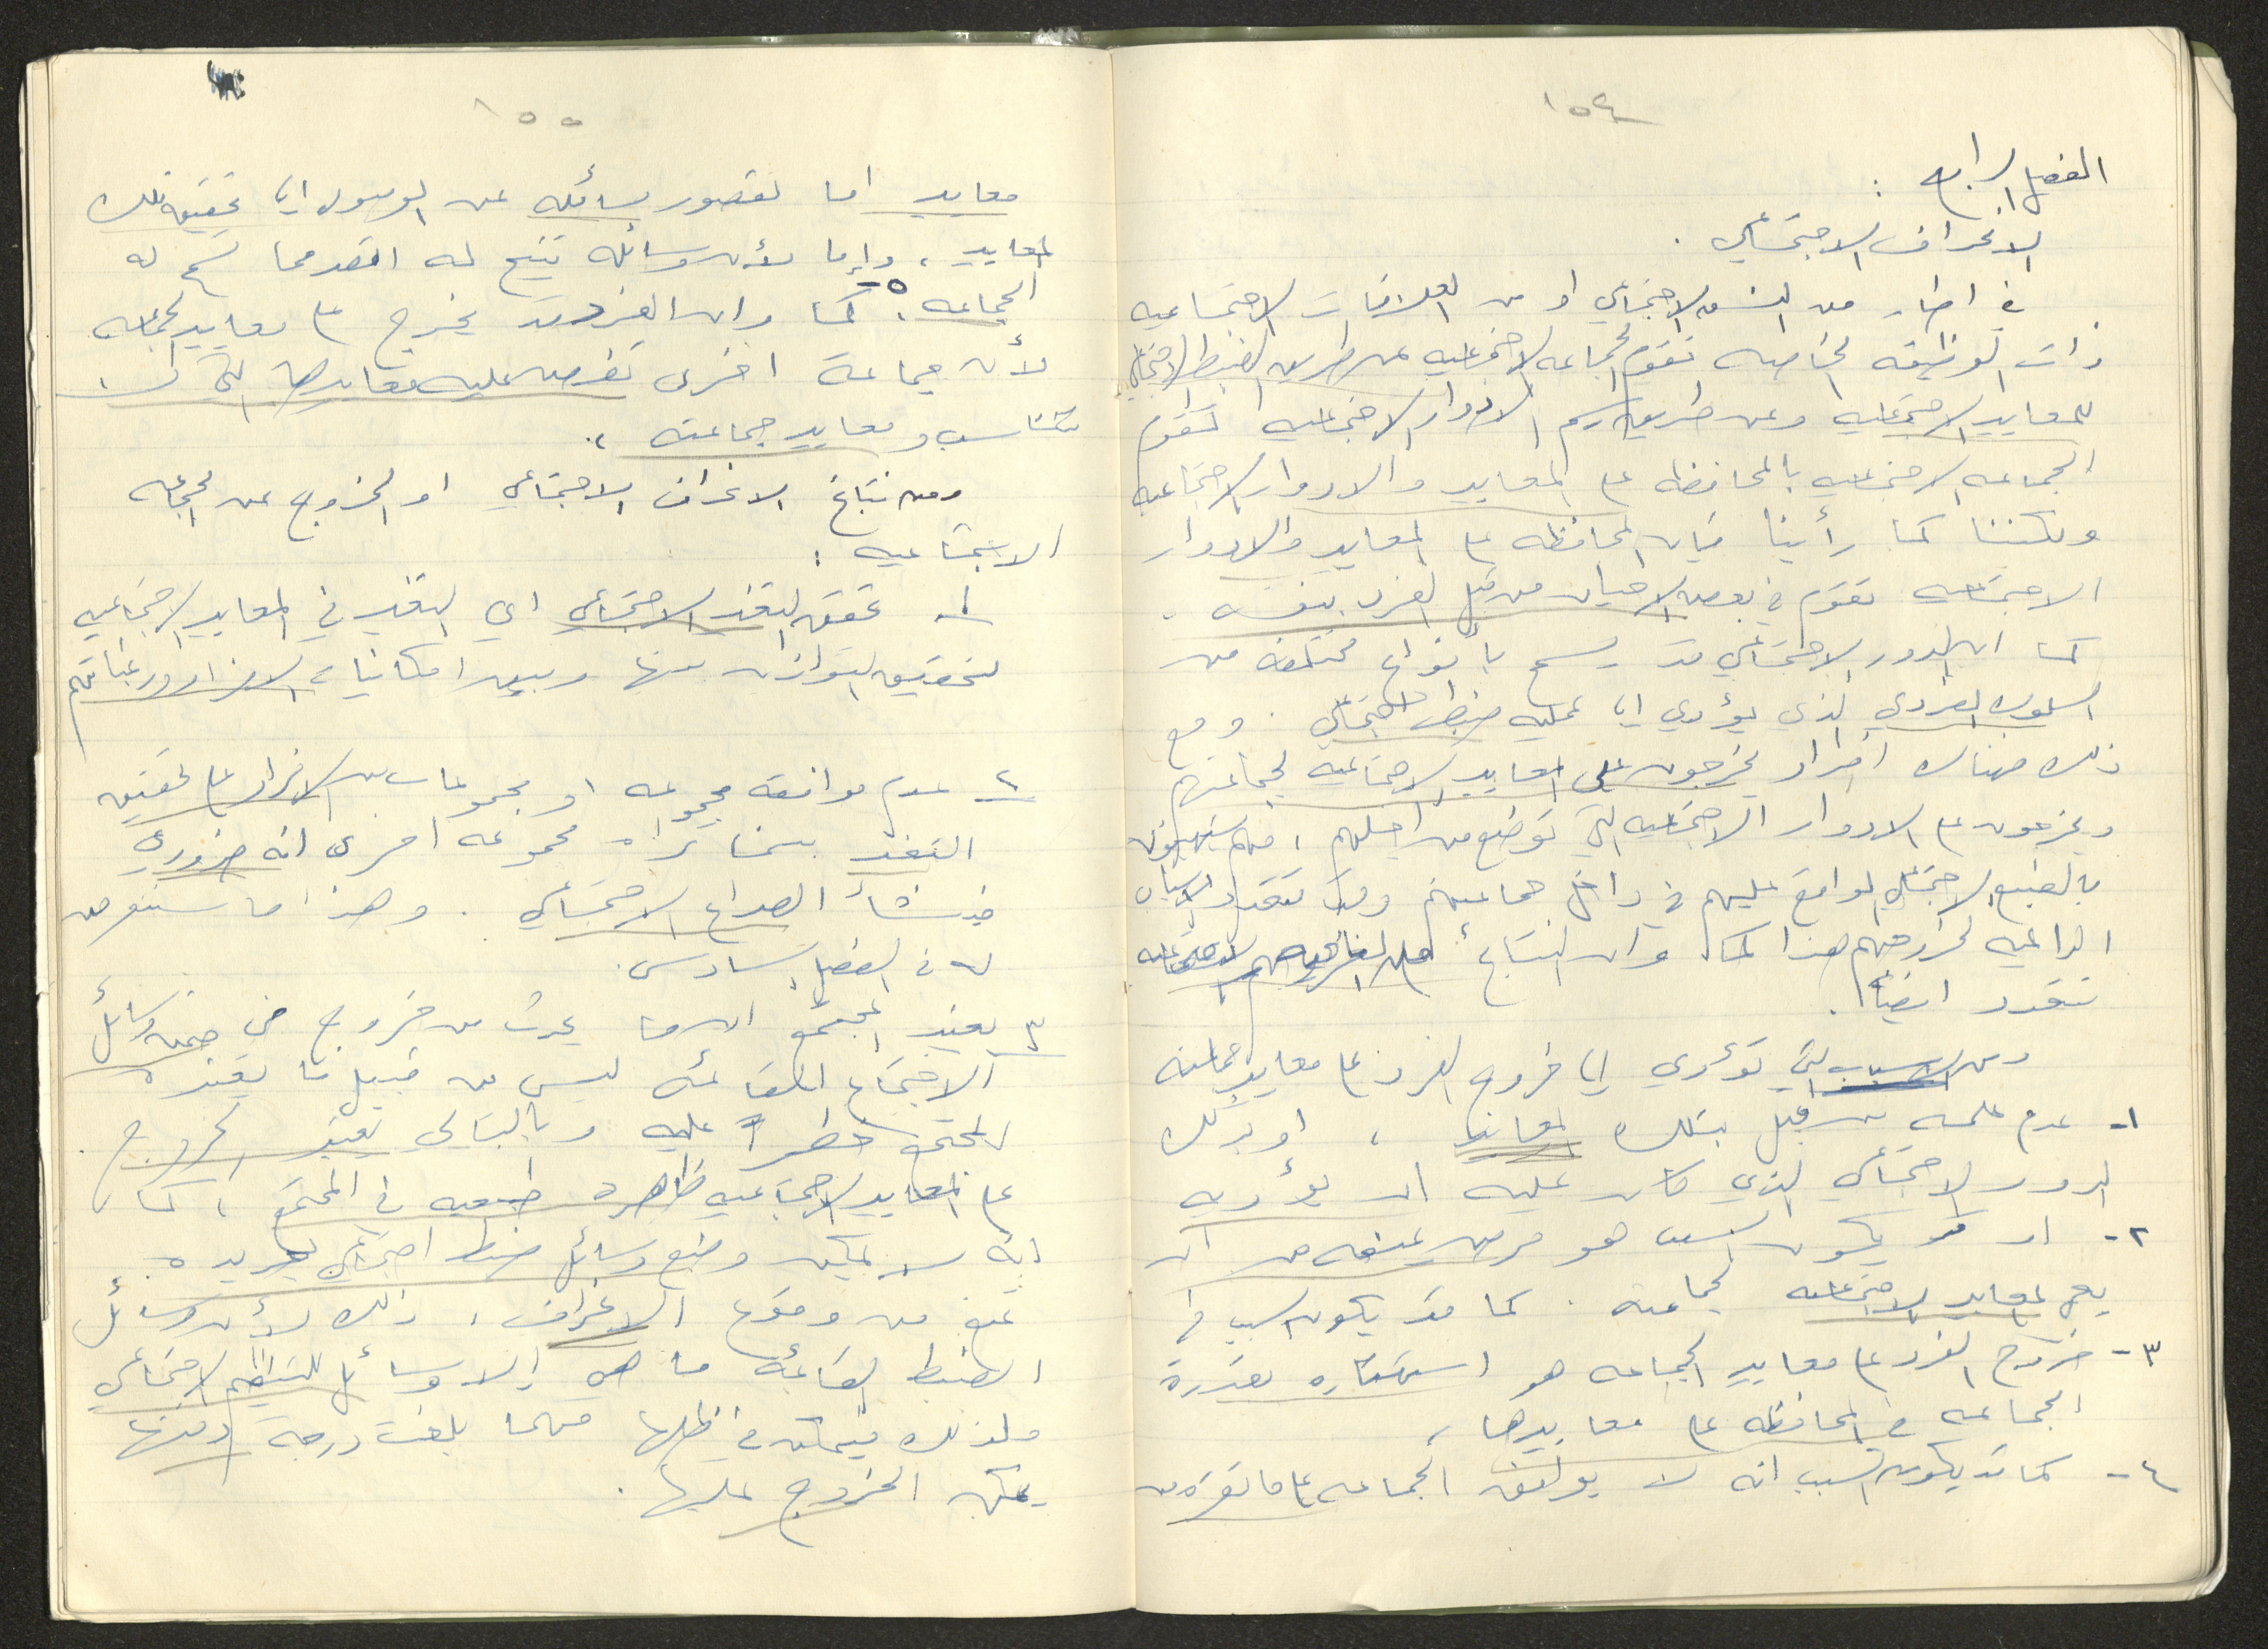 ١٥٤
الفصل الرابع :
الانحراف الاجتماعي .
في اطار من النسق الاجتماعي او من العلاقات الاجتماعيه
ذات الوظيفه الخاصه تقوم الجماعه الاجتماعيه عن طريق الضبط الاجتماعي
للمعايير الاجتماعيه وعن طريق رسم الادوار الاجتماعيه تقوم
الجماعه الاجتماعيه بالمحافظه على المعايير والادوار الاجتماعيه
ولكننا كما رأينا فإن المحافظه على المعايير والادوار
الاجتماعيه تقوم في بعض الاحيان من قبل الفرد بنفسه .
كما ان الدور الاجتماعي قد يسمح بأنواع مختلفه من
السلوك الفردي الذي يؤدي الى عملية ضبط اجتماعي . ومع
ذلك هناك افراد يخرجون على المعايير الاجتماعيه لجماعتهم
ويخرجون على الادوار الاجتماعيه التي توضع من اجلهم ،
الاجتماعي الواقع عليهم في داخل جماعتهم وقد تتعدد الاسباب
الداعيه لخروجهم هذا كما وان النتائج
تتعدد ايضاً .
ومن الاسباب التي تؤدي الى خروج الفرد على معايير جماعته
١- عدم علمه من قبل بتلك المعايير ، او بذلك
الدور الاجتماعي الذي كان عليه ان يؤديه
٢- او قد يكون السبب هو مرض يمنعه من ان
يعي المعايير الاجتماعيه لجماعته . كما قد يكون السبب في
٣- خروج الفرد على معايير الجماعه هو استهتاره بقدرة
الجماعه في المحافظه على معاييرها ،
٤- كما قد يكون السبب انه لا يوافق الجماعه على ما تقره من
١٥٥
معايير اما لقصور وسائله عن الوصول الى تحقيق تلك
المعايير ، وإما لأن وسائله تتيح له اكثر مما تسمح له
الجماعه . ٥- كما وان الفرد قد يخرج على معايير الجماعه
لأن جماعة اخرى تفرض عليه معاييرها التي لا
تتناسب ومعايير جماعته .
ومن نتائج الانحراف الاجتماعي او الخروج عن الجماعه
الاجتماعيه :
١- تحقق التغير الاجتماعي اي التغير في المعايير الاجتماعيه
لتحقيق التوازن بينها وبين امكانيات الافراد ورغباتهم
٢- عدم موافقة مجموعه او مجموعات من الافراد على تحقيق
التغير بينما تراه مجموعه اخرى انه ضروري
فينشأ الصراع الاجتماعي . وهذا ما سنتعرض
له في الفصل السادس .
٣- يعتبر المجتمع ان ما يحدث من خروج في ضمن وسائل
الاجتماع القائمه ليس من قبيل ما يعتبره
المجتمع خطراً عليه وبالتالي يعتبر الخروج
على المعايير الاجتماعيه ظاهره طبيعيه في المجتمع ، كما
انه لا يمكن وضع وسائل ضبط اجتماعي جديده .
تمنع من وقوع الانحراف ، ذلك لأن وسائل
الضبط القائمه ما هي إلا وسائل للتنظيم الاجتماعي
ولذلك فيمكن في ظلها مهما بلغت درجة دقتها
يمكن الخروج عليها .